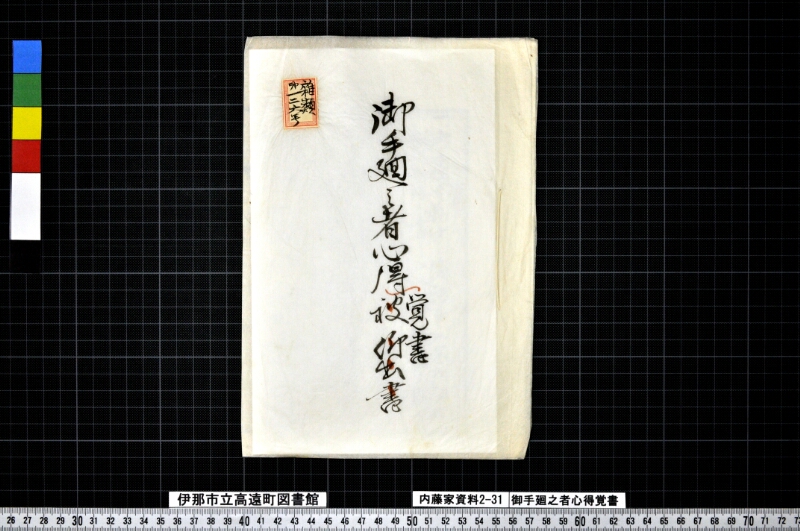 雑類
第一二六号
御手廻之者心得被仰出書
覚書
伊那市立高遠町図書館
内藤家資料2-31
御手廻之者心得覚書
26 27 28 29 30 31 32 33 34 35 36 37 38 39 40 41 42 43 44 45 46 47 48 49 50 51 52 53 54 55 56 57 58 59 60 61 62 63 64 65 66 67 68 69 70 71 72